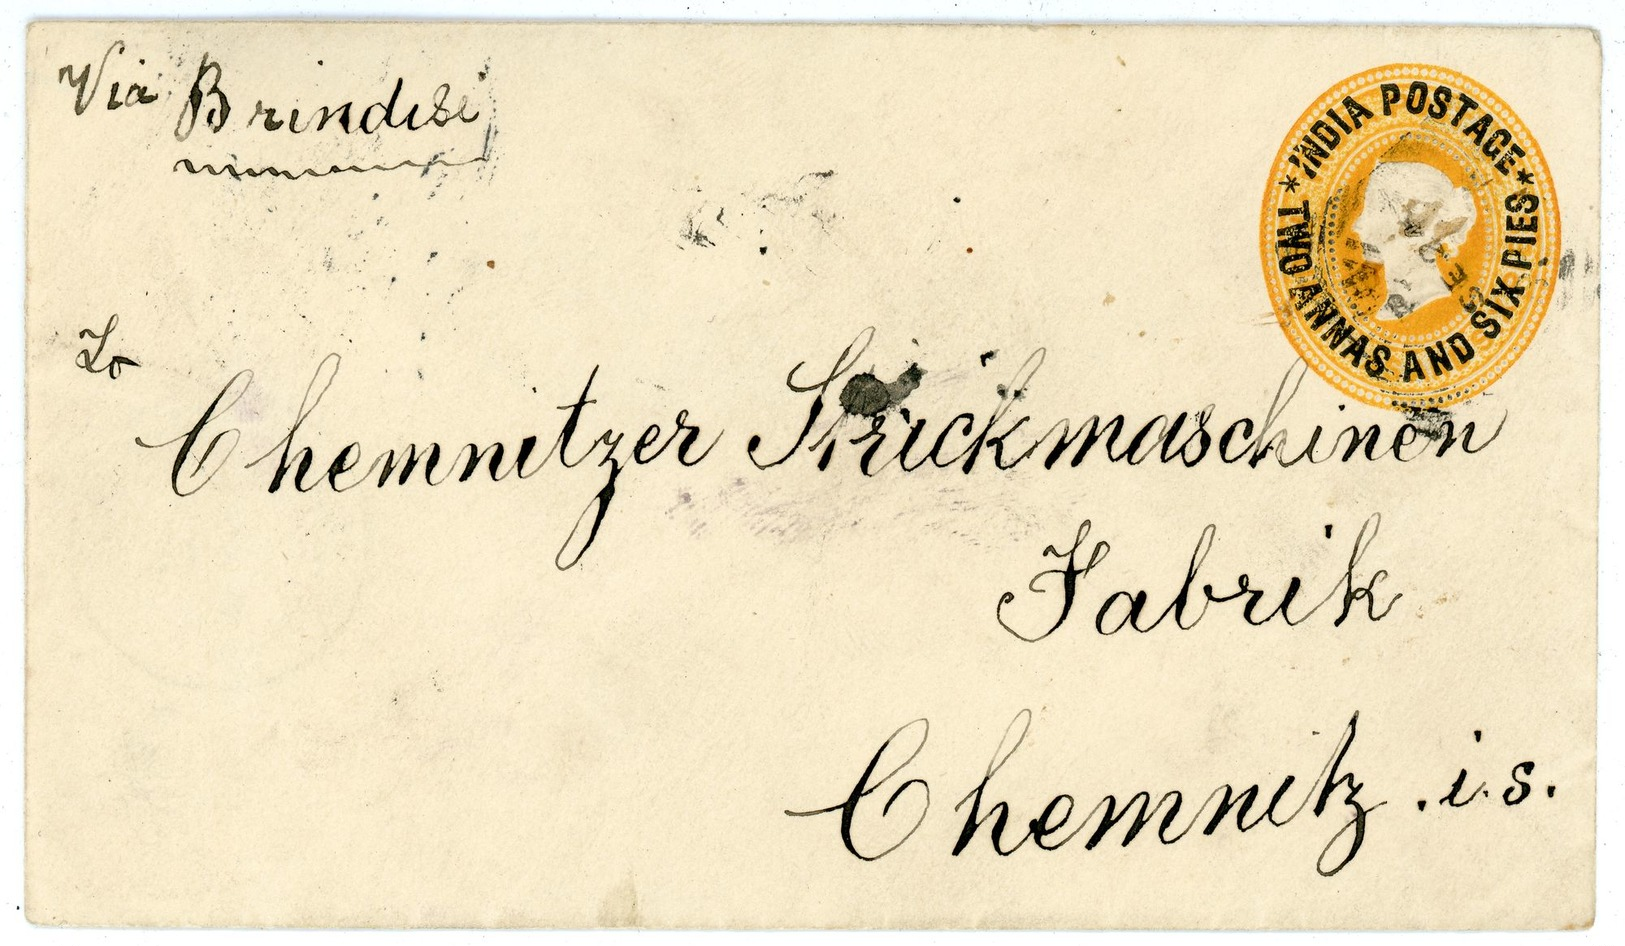 Via Brindisi
INDIA POSTAGE
TWO ANNAS AND SIX PIES
To
Chemnitzer Strickmaschinen
Fabrik
Chemnitz . i. s.